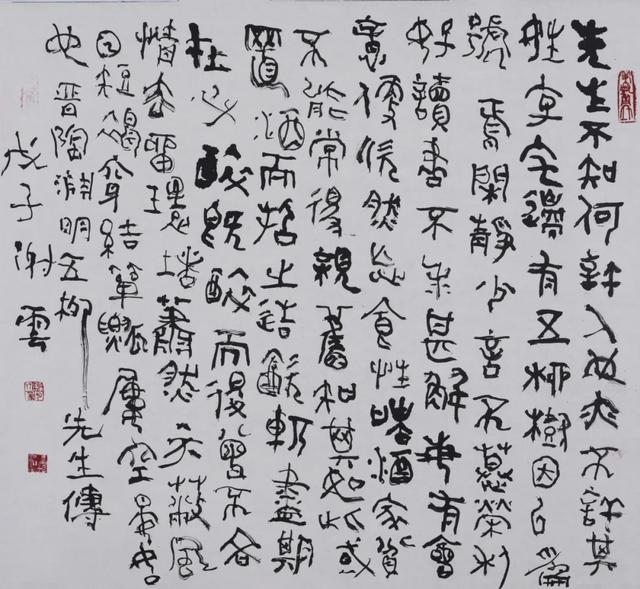 先生不知何許人也亦不詳其
姓字宅邊有五柳樹因以為
號焉閑靜少言不慕榮利
好讀書不求甚解每有會
意便欣然忘食性嗜酒家貧
不能常得親舊知其如此或
置酒而招之造飲輒盡期
在必醉既醉而退曾不吝
情去留環堵蕭然不蔽風
日短褐穿結簞瓢屢空晏如
也晉陶淵明五柳先生傳
戊子謝雲